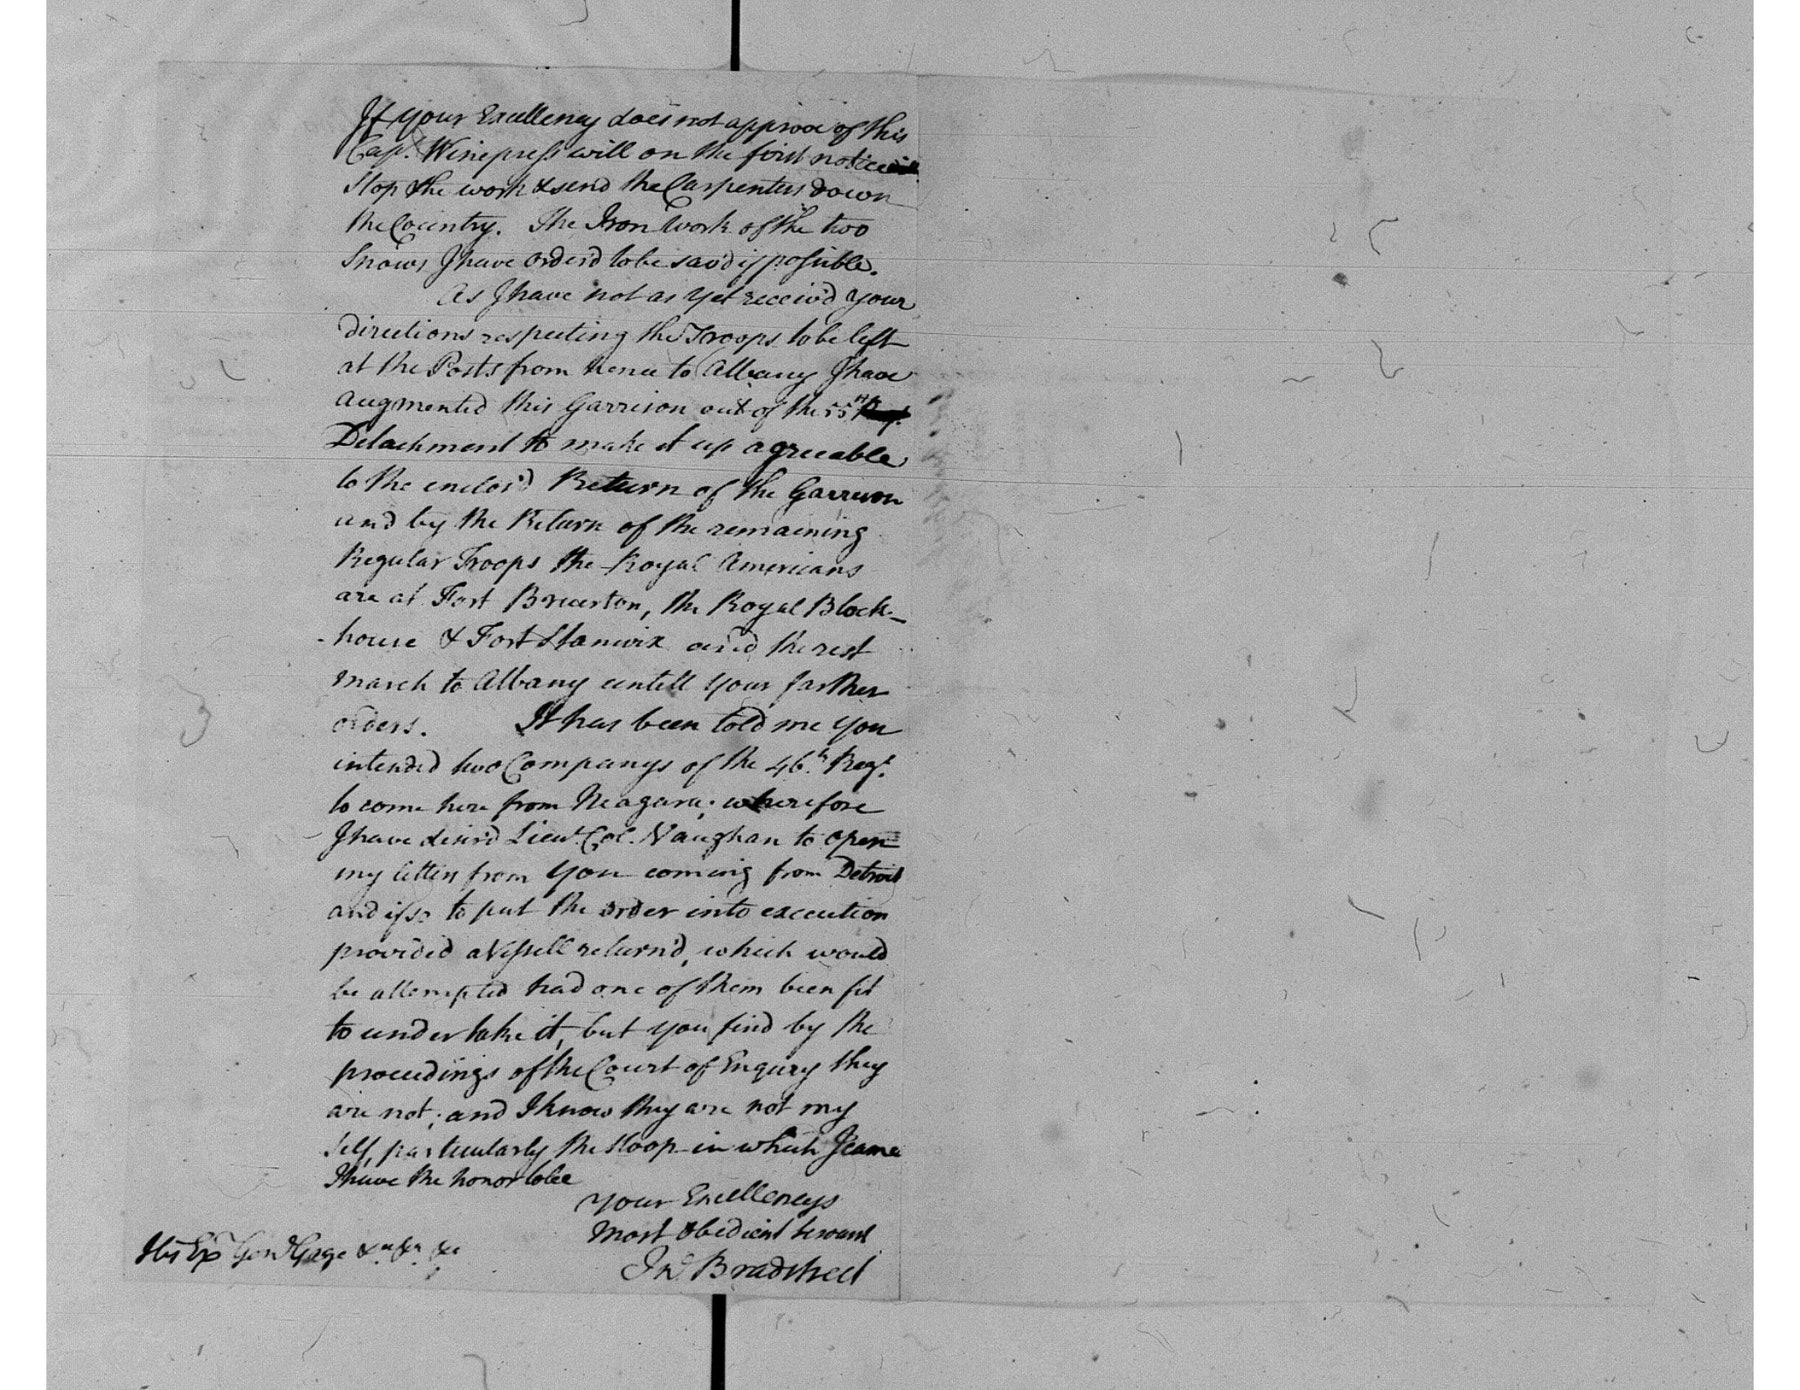 If your Excellency does not approve of this
Cap.t Winepress will on the first notice
stop the work & send the Carpenters down
the Country. The Iron Work of the two
Snows I have order'd to be sav'd if possible.
As I have not as yet receiv'd your
directions respecting the Troops to be left
at the Posts from hence to Albany I have
augmented this Garrison out of the 55th
Detachment to make it up agreeable
to the enclos'd Return of the Garrison
and by the Return of the remaining
Regular Troops the Royal Americans
are at Fort Brewerton, the Royal Block-
house & Fort Stanwix and the rest
march to Albany untill your farther
orders. It has been told me you
intended two Companys of the 46.th Reg.t
to come here from Niagara; wherefore
I have desir'd Lieu.t Col. Vaughan to open
my letters from you coming from Detroit
and if so to put the order into execution
provided a Vessell return'd, which would
be attempted had one of them been fit
to undertake it, but you find by the
proceedings of the Court of Enquiry they
are not; and I know they are not my
self, particularly the Sloop in which I came
I have the honor to be
Your Excellencys
Most obedient servant
Jn.o Bradstreet
His Ex.y Gen.l Gage &.a &.a &.a